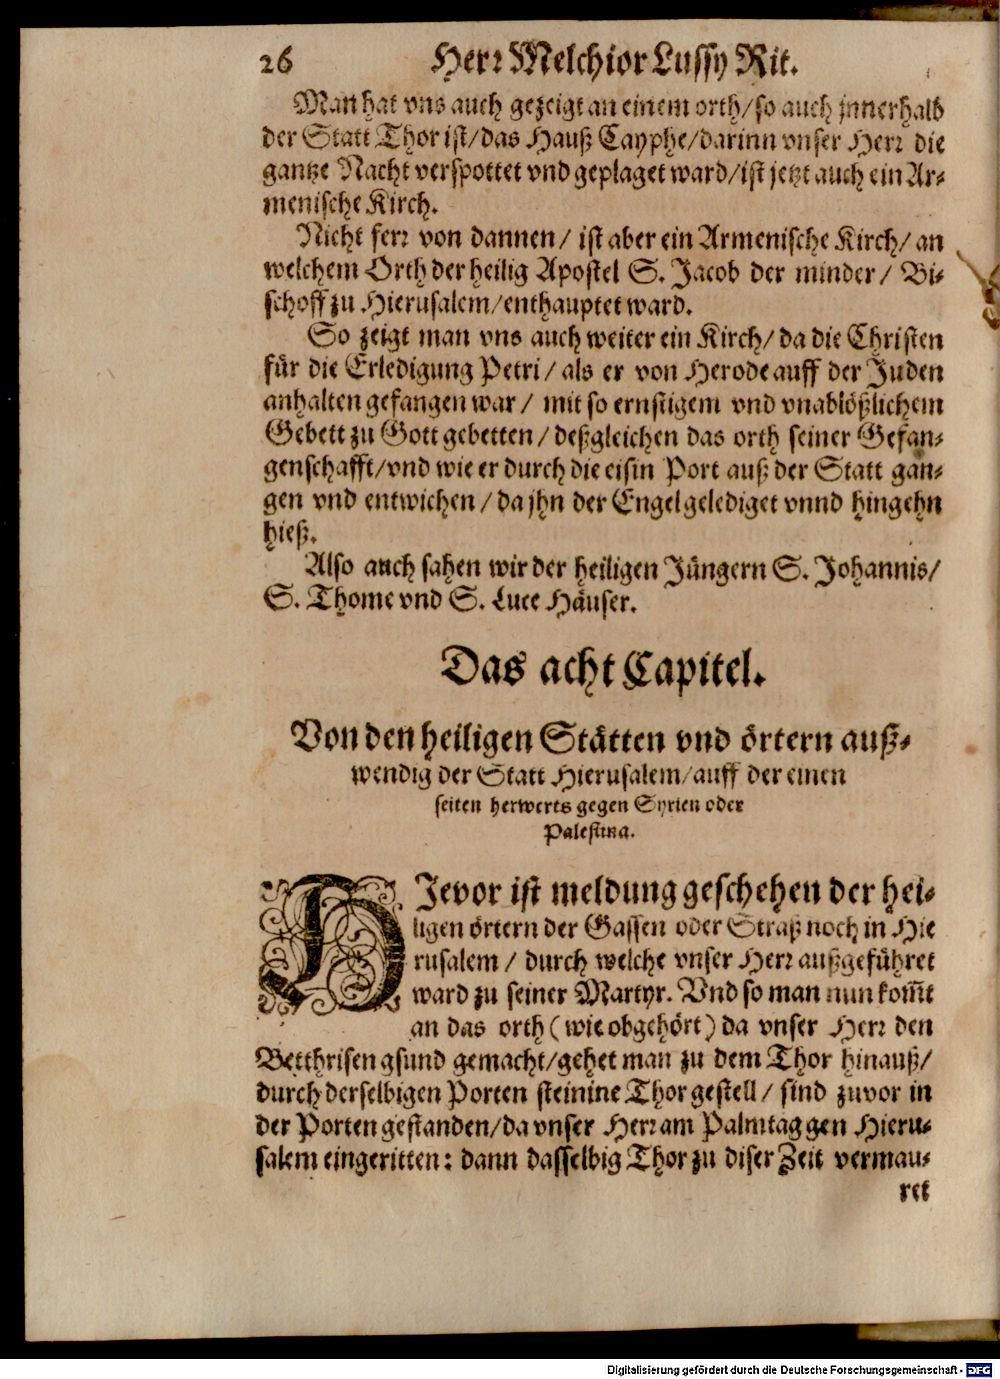 26 Herr Melchior Lussy Rit.
Man hat vns auch gezeigt an einem orth/so auch jnnerhalb
der Statt Thor ist/das Hauß Cayphe/darinn vnser Herr die
gantze Nacht verspottet vnd geplaget ward/ist jetzt auch ein Ar-
menische Kirch.
Nicht ferr von dannen/ ist aber ein Armenische Kirch/ an
welchem Orth der heilig Apostel S. Jacob der minder/ Bi-
schoff zu Hierusalem/enthauptet ward.
So zeigt man vns auch weiter ein Kirch/ da die Christen
für die Erledigung Petri/ als er von Herode auff der Juden
anhalten gefangen war/ mit so ernstigem vnd vnablößlichem
Gebett zu Gott gebetten/ deßgleichen das orth seiner Gefan-
genschafft/vnd wie er durch die eisin Port auß der Statt gan-
gen vnd entwichen/ da jhn der Engel gelediget vnnd hingehn
hieß.
Also auch sahen wir der heiligen Jüngern S. Johannis/
S. Thome vnd S. Luce Häuser.
Das acht Capitel.
Von den heiligen Stätten vnd örtern auß-
wendig der Statt Hierusalem/auff der einen
seiten herwerts gegen Syrien oder
Palestina.
HJevor ist meldung geschehen der hei-
ligen örtern der Gassen oder Straß noch in Hie
rusalem/ durch welche vnser Herr außgeführet
ward zu seiner Martyr. Vnd so man nun kom̃t
an das orth (wie obgehört) da vnser Herr den
Betthrisen gsund gemacht/gehet man zu dem Thor hinauß/
durch derselbigen Porten steinine Thorgestell/ sind zuvor in
der Porten gestanden/da vnser Herr am Palmtag gen Hieru-
salem eingeritten: dann dasselbig Thor zu diser Zeit vermau-
ret
Digitalisierung gefördert durch die Deutsche Forschungsgemeinschaft - DFG